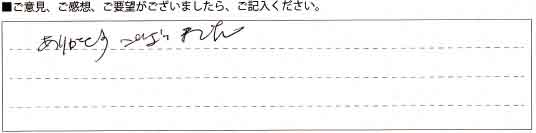 ■ご意見、ご感想、ご要望がございましたら、ご記入ください。
ありがとう